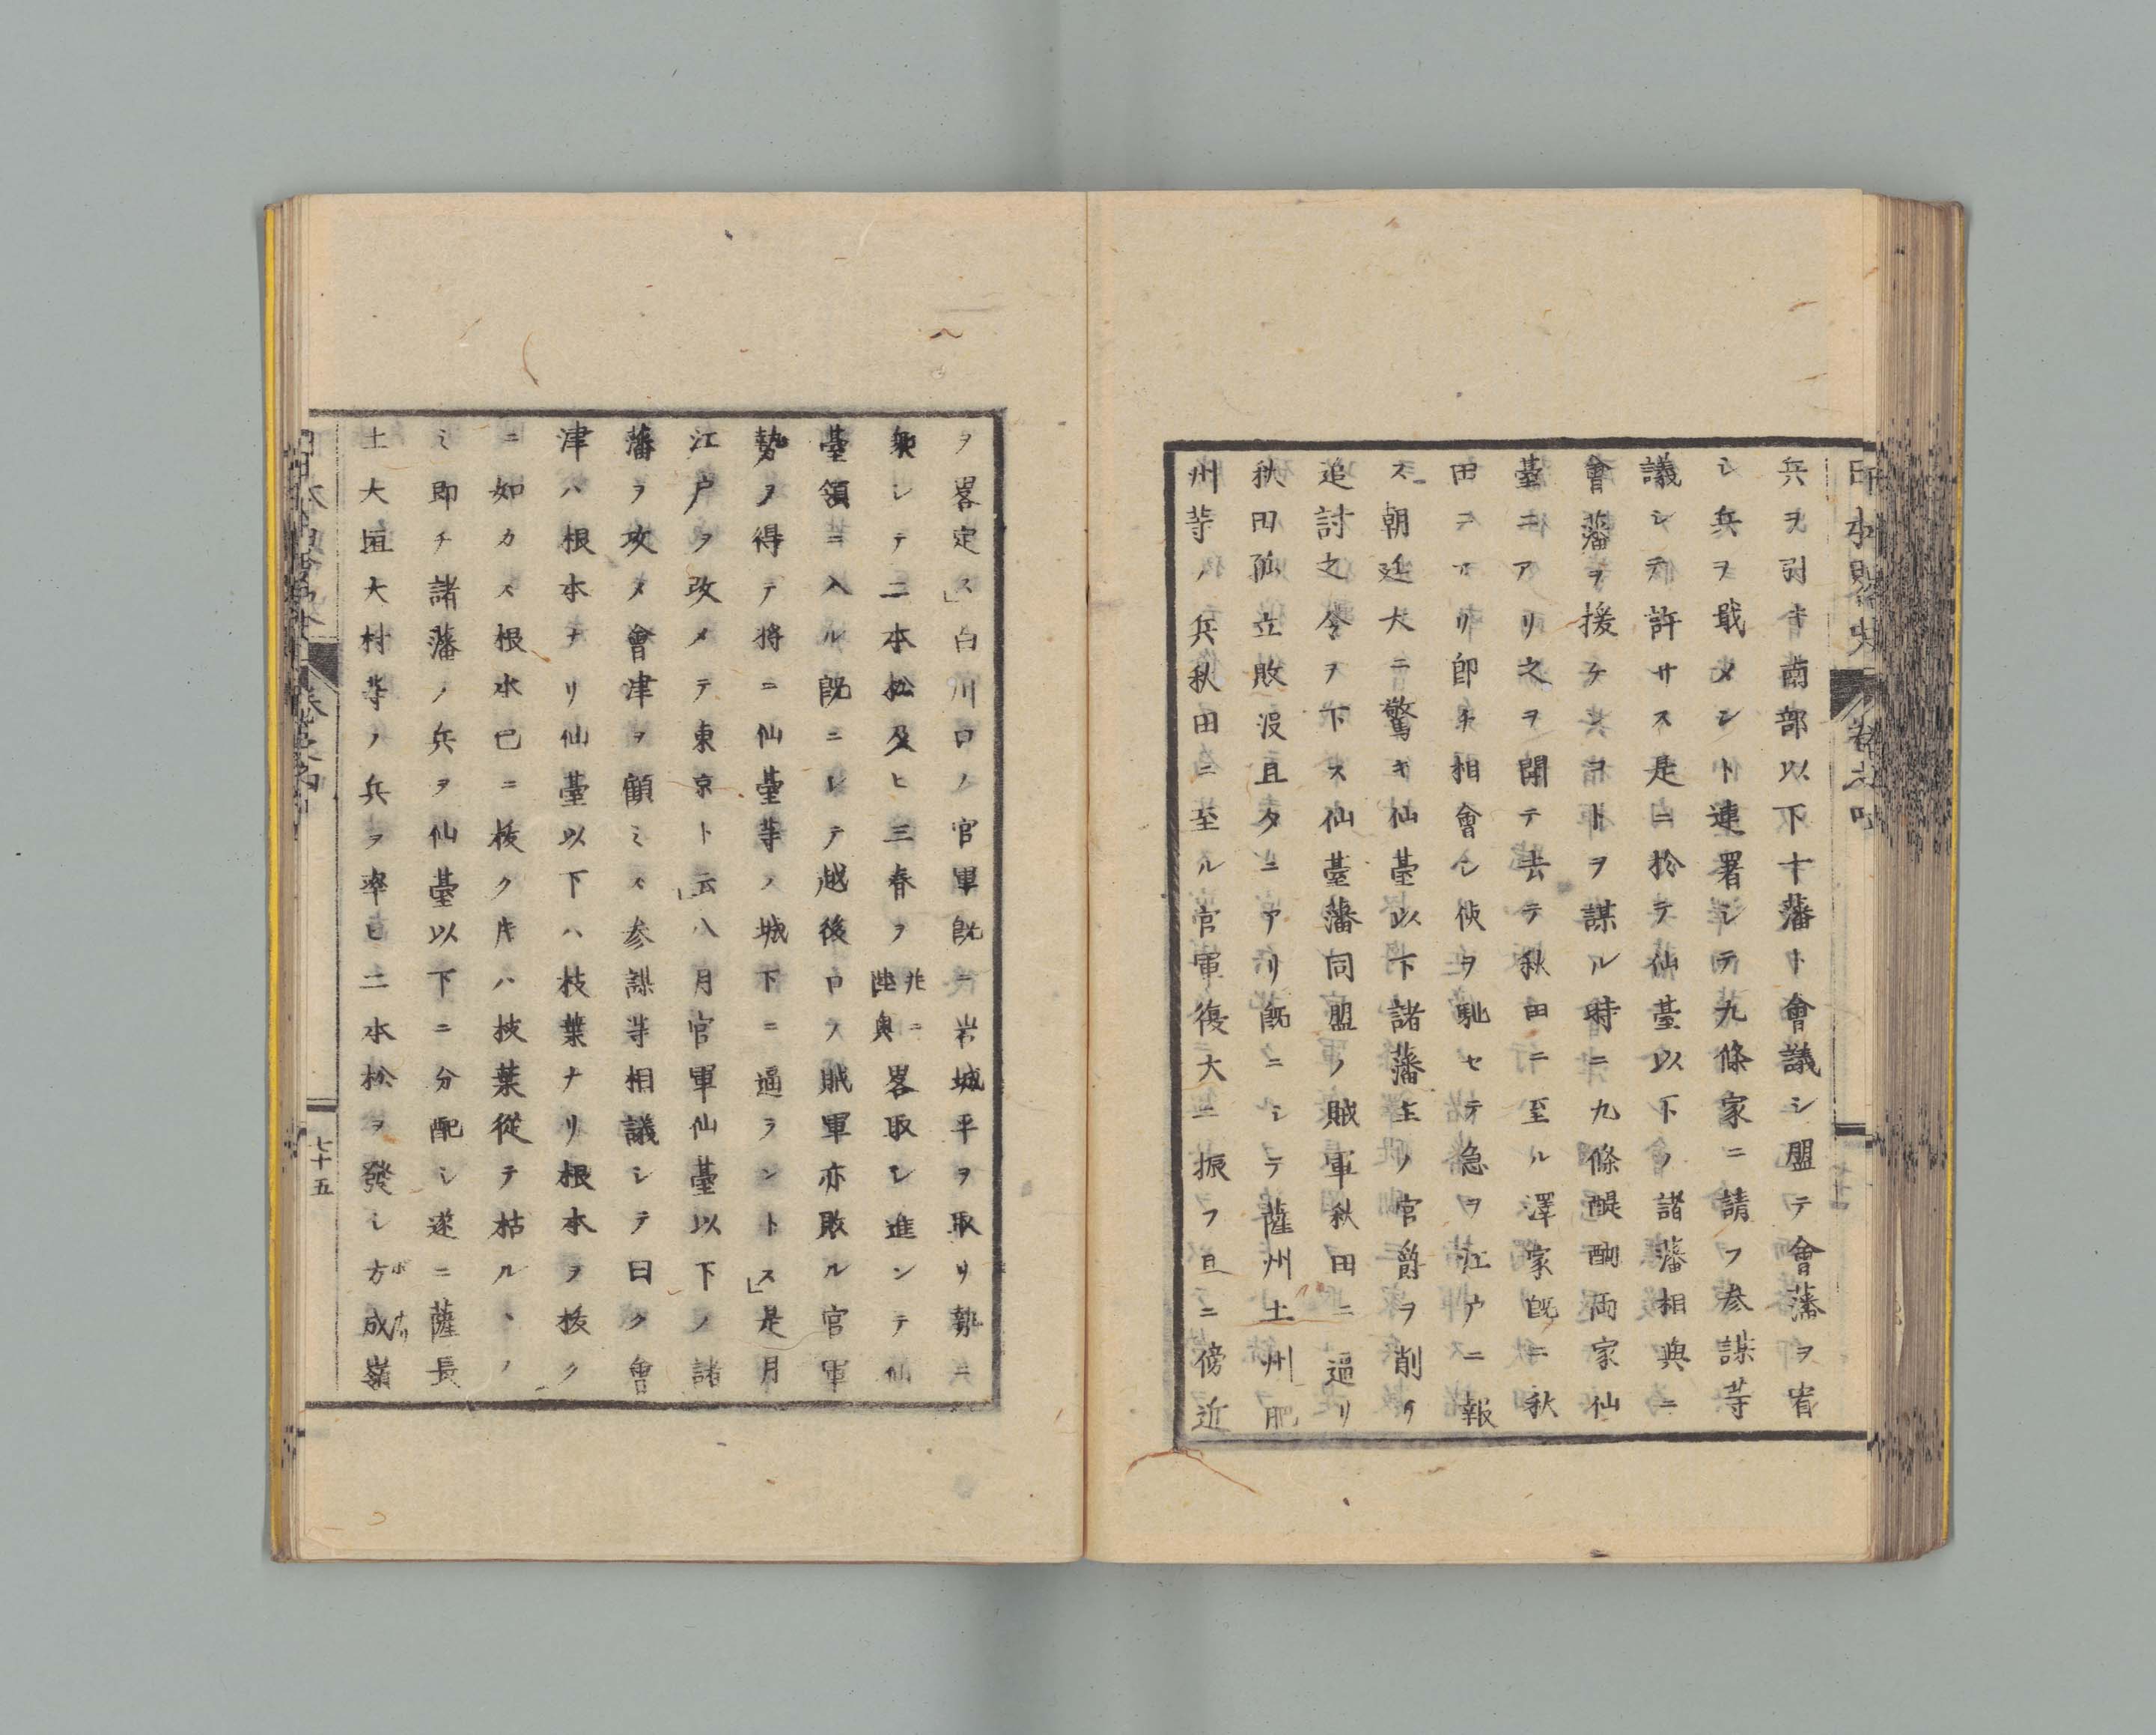 日本畧史 卷之四
兵ヲ引キ南部以下十藩ト會議シ盟テ會藩ヲ宥
シ兵ヲ戢メント連署シテ九條家ニ請フ参謀等
議シテ許サス是ニ於テ仙臺以下ノ諸藩相與ニ
會藩ヲ援ケンヿトヲ謀ル時ニ九條醍醐両家仙
臺ニアリ之ヲ聞テ去テ秋田ニ至ル澤家既ニ秋
田ニアリ即チ相會シ使ヲ馳セテ急ヲ江戸ニ報
ス朝廷大ニ驚キ仙臺以下諸藩主ノ官爵ヲ削リ
追討之令ヲ下ス仙臺藩同盟ノ賊軍秋田ニ逼リ
秋田孤立敗没且タニアリ既ニシテ薩州土州肥
州等ノ兵秋田ニ至ル官軍復大ニ振フ旦ニ傍近
ヲ畧定ス」白川口ノ官軍既ニ岩城平ヲ取リ勢ニ
乘シテ二本松及ヒ三春ヲ 並ニ陸奥 畧取シ進ンテ仙
臺領ニ入ル既ニシテ越後口ノ賊軍亦敗ル官軍
勢ヲ得テ将ニ仙臺等ノ城下ニ逼ラントス」是月
江戸ヲ改メテ東京ト云」八月官軍仙臺以下ノ諸
藩ヲ攻メ會津ヲ顧ミス参謀等相議シテ曰ク會
津ハ根本ナリ仙臺以下ハ枝葉ナリ根本ヲ抜ク
ニ如カス根本已ニ抜ク片ハ枝葉從テ枯ルヽノ
ミ即チ諸藩ノ兵ヲ仙臺以下ニ分配シ遂ニ薩長
土大垣大村等ノ兵ヲ率ヒ二本松ヲ發シ方成嶺
七十五